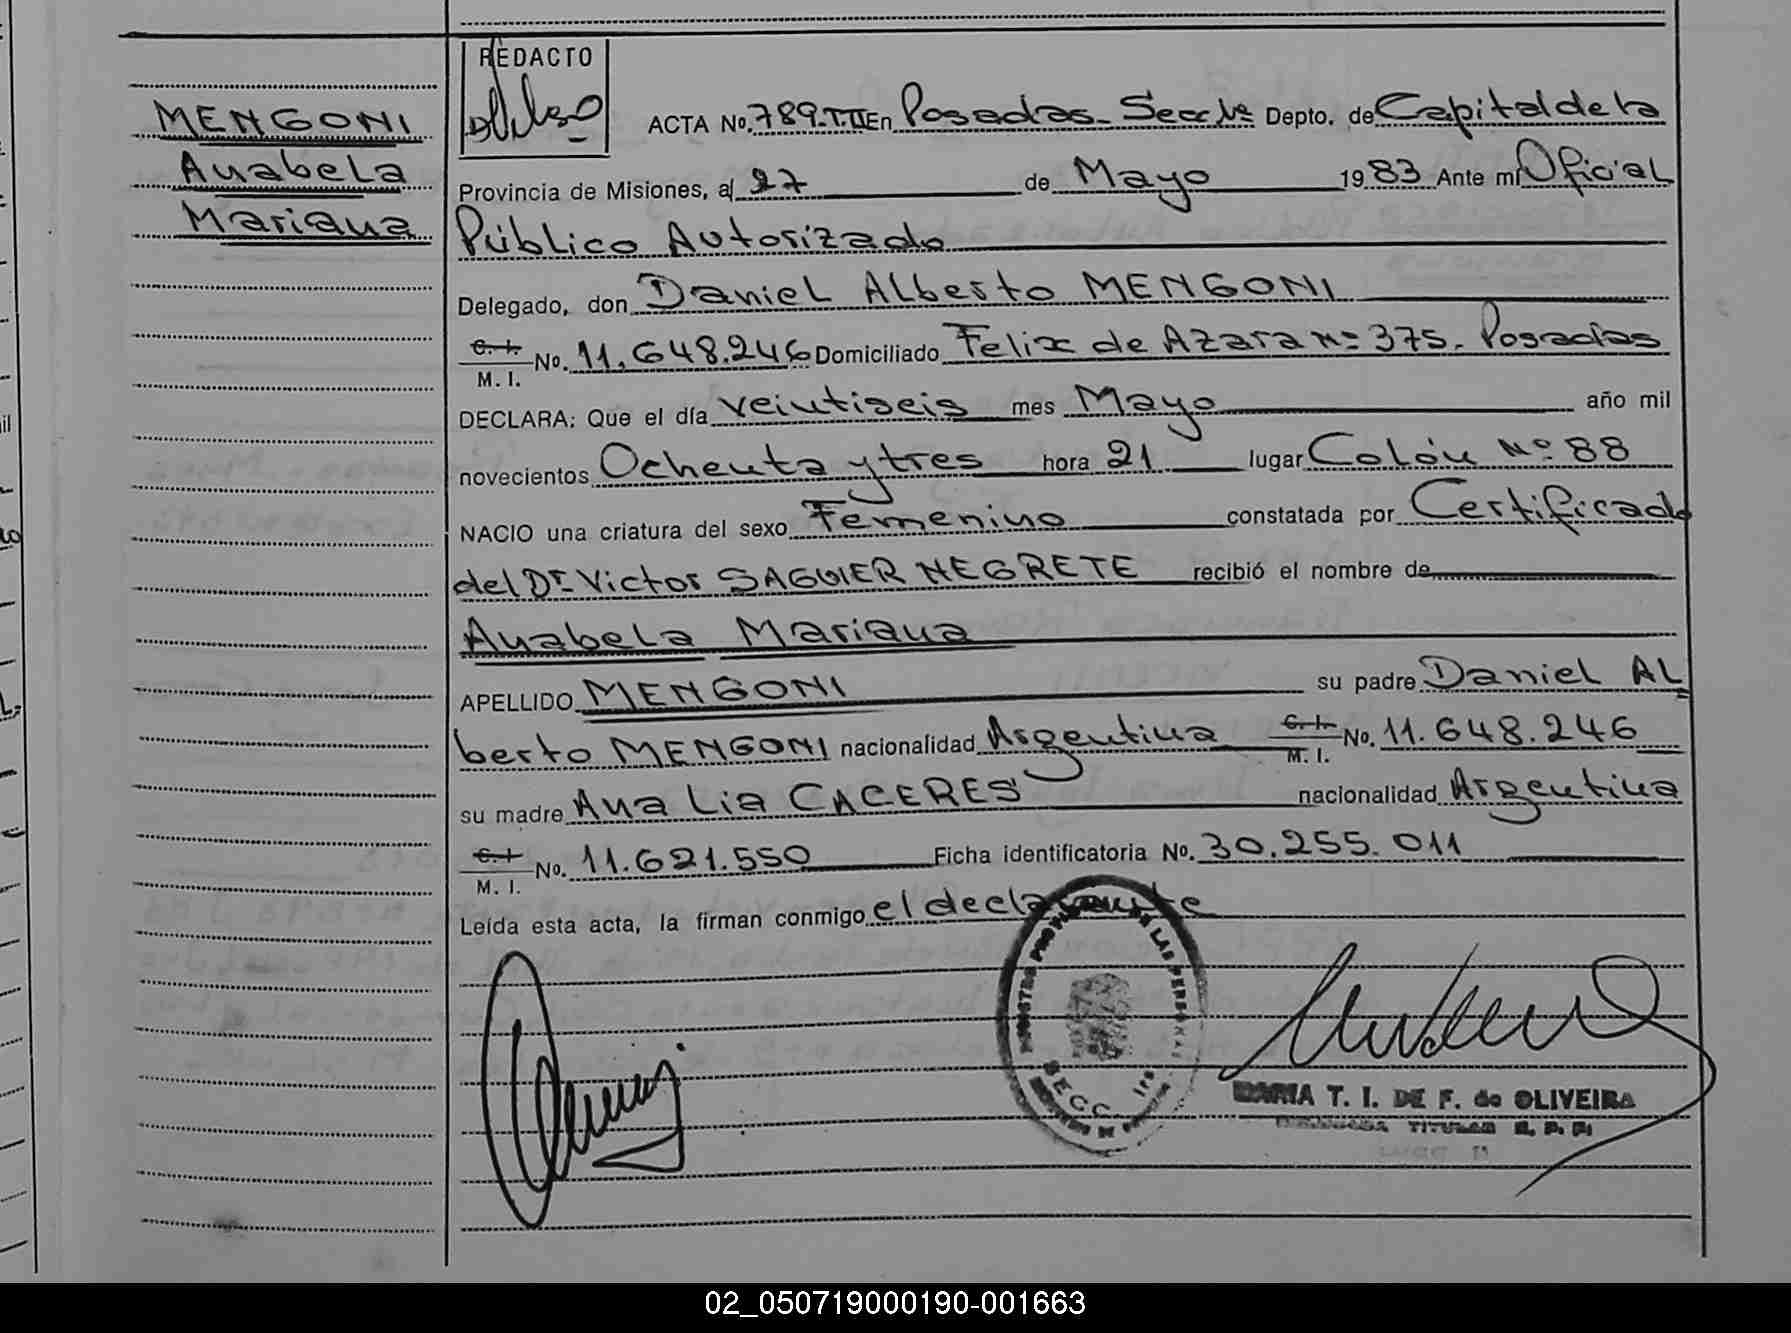 REDACTO
MENGONI
Anabela
Mariana
ACTA No. 789-T-II En Posadas- Secc 1ª Depto. de Capital de la
Provincia de Misiones, al 27 de Mayo 1983 Ante mí Oficial
Público Autorizado
Delegado, don Daniel Alberto MENGONI
C. I.
M. I. No. 11.648.246 Domiciliado Felix de Azara Nº 375. Posadas
DECLARA: Que el día veintiseis mes Mayo año mil
novecientos Ochenta y tres hora 21 lugar Colón Nº 88
NACIO una criatura del sexo Femenino constatada por Certificado
del Dr Victor SAGUIER NEGRETE recibió el nombre de
Anabela Mariana
APELLIDO MENGONI su padre Daniel AL
berto MENGONI nacionalidad Argentina C. I. M. I. No. 11.648.246
su madre Ana Lia CACERES nacionalidad Argentina
C. I.
M. I. No. 11.621.550 Ficha identificatoria No. 30.255.011
Leída esta acta, la firman conmigo el declarante
SECC 1ra
MARIA T. I. DE F. de OLIVEIRA
TITULAR R. P. P.
02_050719000190-001663